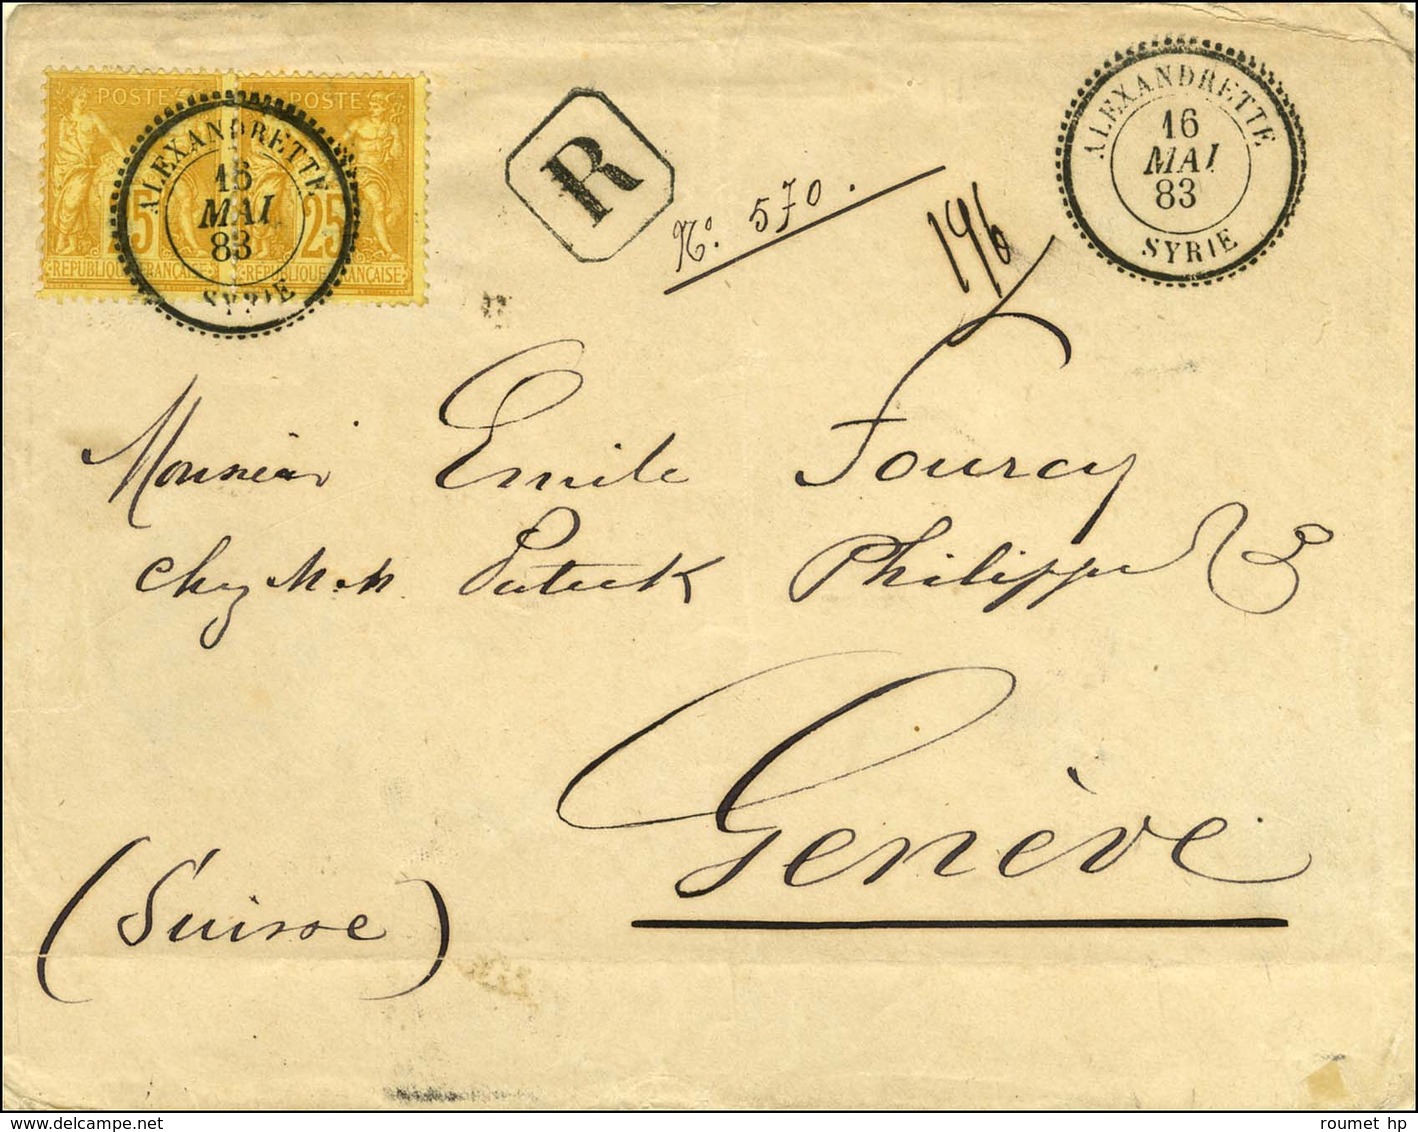 POSTES POSTES
25 25
REPUBLIQUE FRANÇAISE REPUBLIQUE FRANÇAISE
ALEXANDRETTE
16
MAI
83
SYRIE
R
No. 570.
196
ALEXANDRETTE
16
MAI
83
SYRIE
Monsieur Emile Fourcy
Chez M.M. Pateck Philippe
Genève
(Suisse)
roumet hp